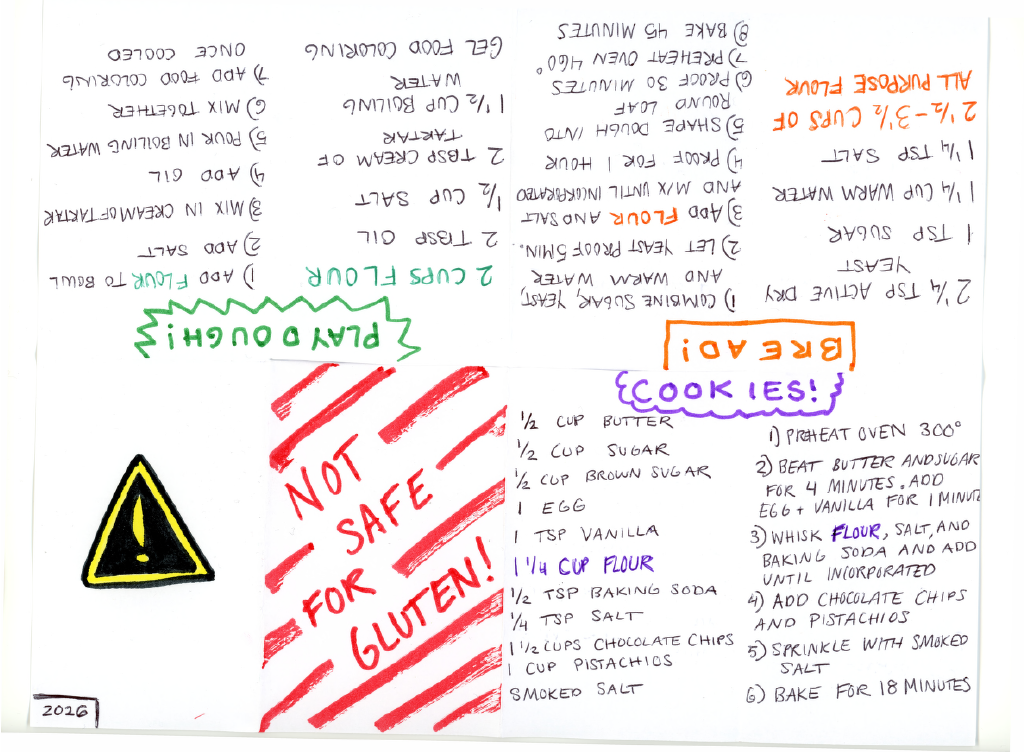 NOT
SAFE
FOR
GLUTEN!
COOKIES!
1/2 CUP BUTTER
1/2 CUP SUGAR
1/2 CUP BROWN SUGAR
1 EGG
1 TSP VANILLA
1 1/4 CUP FLOUR
1/2 TSP BAKING SODA
1/4 TSP SALT
1 1/2 CUPS CHOCOLATE CHIPS
1 CUP PISTACHIOS
SMOKED SALT
1) PREHEAT OVEN 300°
2) BEAT BUTTER AND SUGAR
FOR 4 MINUTES. ADD
EGG + VANILLA FOR 1 MINUTE
3) WHISK FLOUR, SALT, AND
BAKING SODA AND ADD
UNTIL INCORPORATED
4) ADD CHOCOLATE CHIPS
AND PISTACHIOS
5) SPRINKLE WITH SMOKED
SALT
6) BAKE FOR 18 MINUTES
BREAD!
2 1/4 TSP ACTIVE DRY
YEAST
1 TSP SUGAR
1 1/4 CUP WARM WATER
1 1/4 TSP SALT
2 1/2 - 3 1/2 CUPS OF
ALL PURPOSE FLOUR
1) COMBINE SUGAR, YEAST,
AND WARM WATER
2) LET YEAST PROOF 5 MIN.
3) ADD FLOUR AND SALT
AND MIX UNTIL INCORPORATED
4) PROOF FOR 1 HOUR
5) SHAPE DOUGH INTO
ROUND LOAF
6) PROOF 30 MINUTES
7) PREHEAT OVEN 460°
8) BAKE 45 MINUTES
PLAYDOUGH!
2 CUPS FLOUR
2 TBSP OIL
1/2 CUP SALT
2 TBSP CREAM OF
TARTAR
1 1/2 CUP BOILING
WATER
GEL FOOD COLORING
1) ADD FLOUR TO BOWL
2) ADD SALT
3) MIX IN CREAM OF TARTAR
4) ADD OIL
5) POUR IN BOILING WATER
6) MIX TOGETHER
7) ADD FOOD COLORING
ONCE COOLED
!
2016